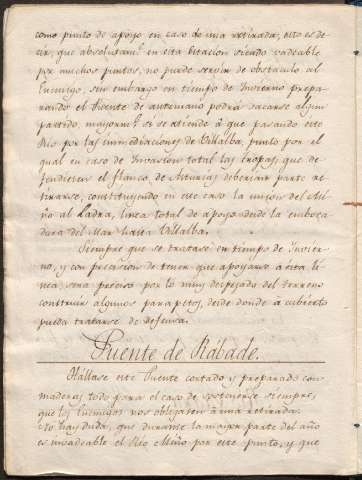 como punto de apoyo en caso de una retirada, esto es de
cir, que absolutamᵉ en esta estacion siendo vadeable
por muchos puntos, no puede servir de obstáculo al
Enemigo, sin embargo en tiempo de Invierno prepa-
rando el Puente de antemano podrá sacarse algun
partido, mayormᵉ si se atiende á que pasando este
Rio por las inmediaciones de Villalba, punto por el
qual en caso de Invasion total las tropas que de-
fendiesen el flanco de Asturias deberian parte re-
tirarse, constituyendo en este caso la union del Mi-
ño al Ladra, linea total de apoyo desde la emboca
dura del Mar hasta Villalba.
Siempre que se tratase en tiempo de Invier-
no, y con precision de tener que apoyarse á esta li
nea, será preciso por lo muy despejado del terreno
construir algunos parapetos, desde donde á cubierto
pueda tratarse de defensa.
Puente de Rábade.
Hállase este Puente cortado y preparado con
maderas todo para el caso de sostenerse siempre,
que los Enemigos nos obligasen á una retirada.
No hay duda, que durante la mayor parte del año
es invadeable el Rio Miño por este punto, y que